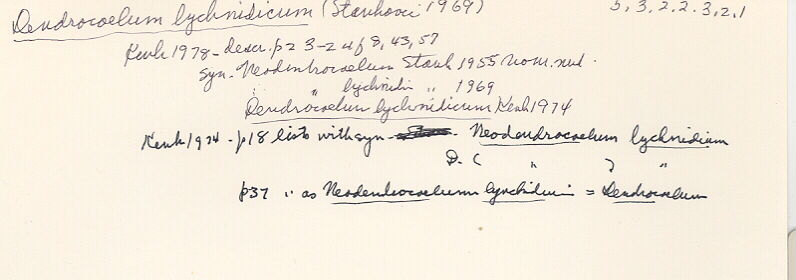 Dendrocoelum lychnidicum (Stankovic 1969) 5, 3, 2. 2. 3, 2, 1
Kenk 1978 - descr. p 23-24 f 8, 43, 57
Syn. Neodendrocoelum Stank 1955 nom. nud.
" lychnidic " 1969
Dendrocoelum lychnidicum Kenk 1974
Kenk 1974 - p18 lists with syn - Neodendrocoelum lychnidium
D. ( " ) "
p37 " as Neodendrocoelum lynchidicum = Dendrocoelum